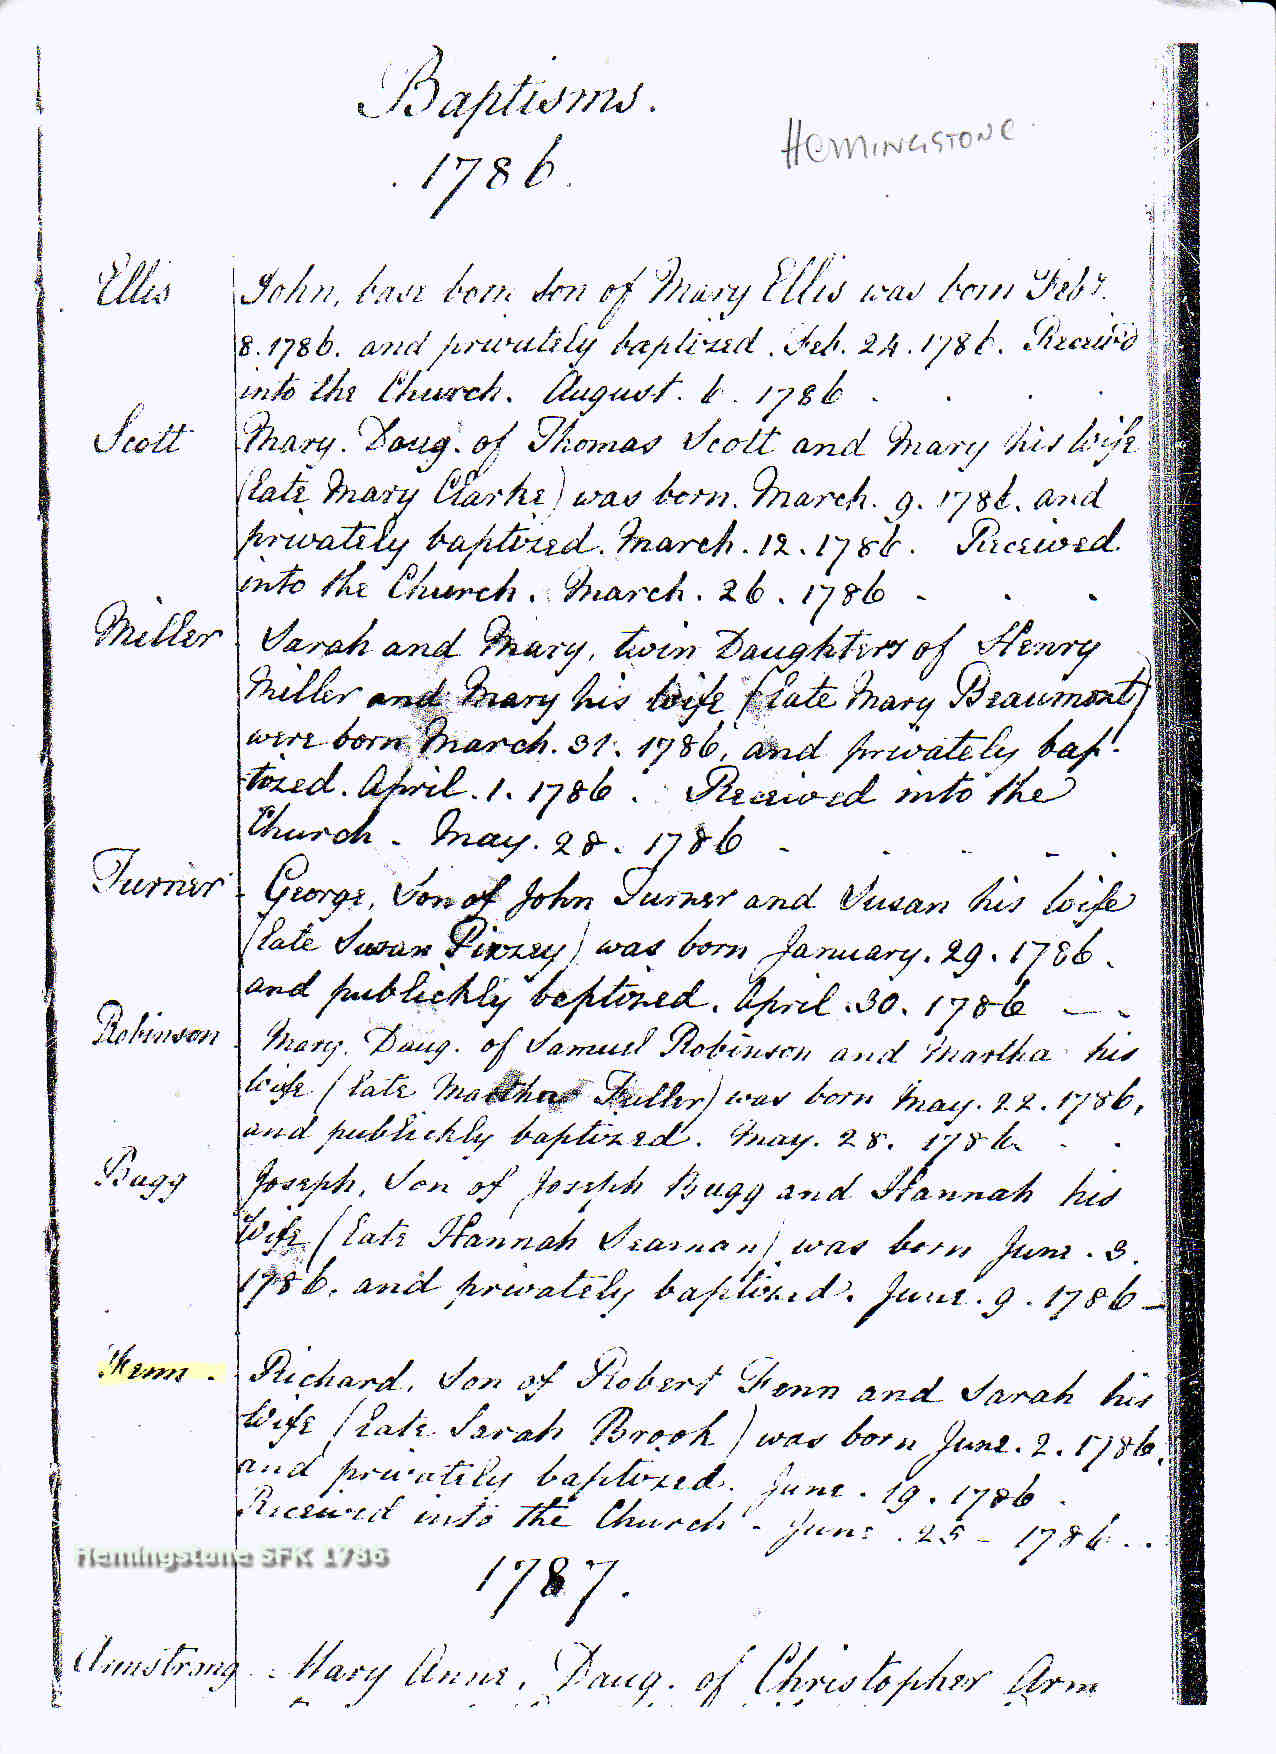 Baptisms.
HEMINGSTONE
1786.
Ellis John, base born son of Mary Ellis was born Feby.
8. 1786. and privately baptized. Feb. 24. 1786. Received
into the Church. August. 6. 1786
Scott Mary. Daug. of Thomas Scott and Mary his Wife
(late Mary Clarke) was born. March. 9. 1786. and
privately baptized. March. 12. 1786. Received
into the Church. March. 26. 1786
Miller Sarah and Mary, twin Daughters of Henry
Miller and Mary his wife (late Mary Beaumont)
were born March. 31. 1786, and privately bap-
tized. April. 1. 1786. Received into the
Church. May. 28. 1786
Turner George, Son of John Turner and Susan his wife
(late Susan Pizzey) was born January. 29. 1786.
and publickly baptized. April. 30. 1786
Robinson Mary. Daug. of Samuel Robinson and Martha his
Wife (late Martha Fuller) was born May. 22. 1786,
and publickly baptized. May. 28. 1786.
Bugg Joseph, Son of Joseph Bugg and Hannah his
Wife (late Hannah Seaman) was born June. 3.
1786. and privately baptized. June. 9. 1786
Fenn. Richard, Son of Robert Fenn and Sarah his
Wife (late Sarah Brook) was born June. 2. 1786.
and privately baptized. June. 19. 1786.
Received into the Church - June. 25 - 1786
Hemingstone SFK 1786
1787.
Armstrong Mary Anne, Daug. of Christopher Arm